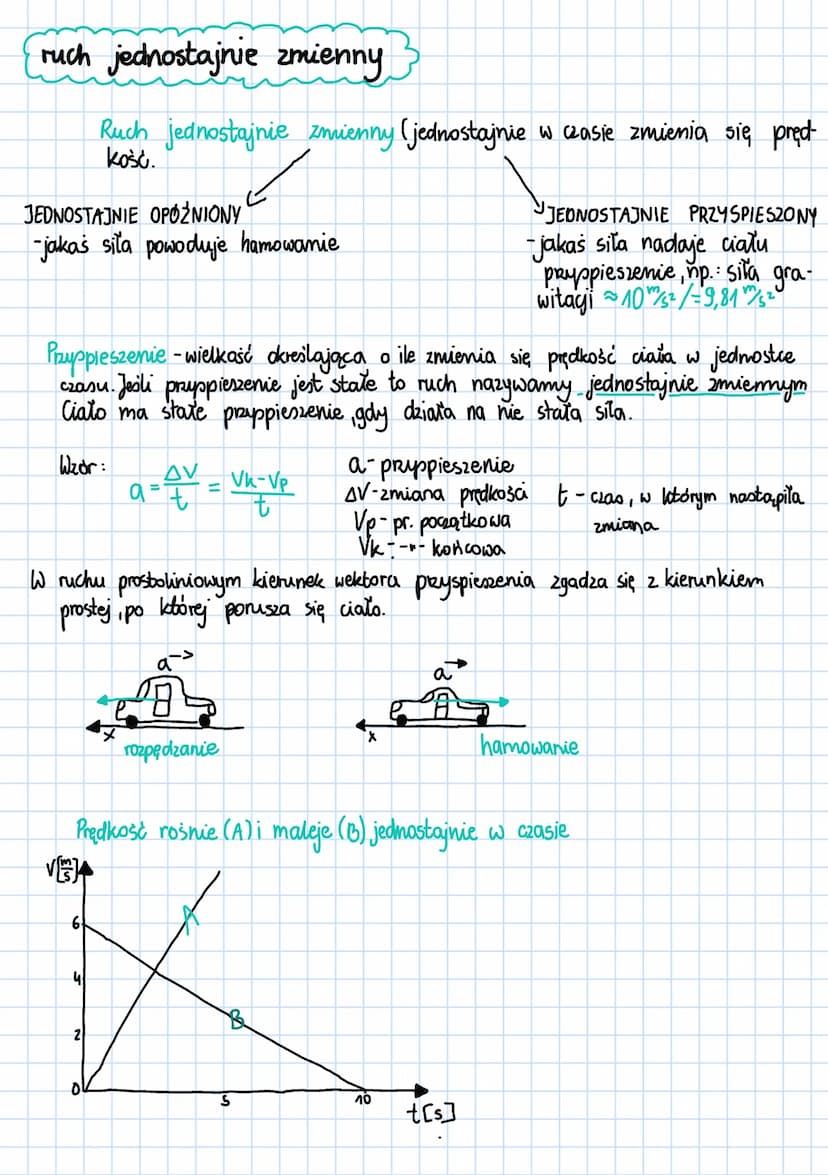 ruch jednostajnie zmienny
Ruch jednostajnie zmienny (jednostajnie w czasie zmienia się pręd-
kość.
JEDNOSTAJNIE OPÓŹNIONY
-jakaś siła powoduje hamowanie
JEDNOSTAJNIE PRZYSPIESZONY
-jakaś siła nadaje ciału
przyspieszenie, np.: siła gra-
witacji ≈10 m/s² /=9,81 m/s²
Przyspieszenie - wielkość określająca o ile zmienia się prędkość ciała w jednostce
czasu. Jeśli przyspieszenie jest stałe to ruch nazywamy jednostajnie zmiennym
Ciało ma stałe przyspieszenie, gdy działa na nie stała siła.
Wzór:
a = ΔV/t = Vk-Vp/t
a - przyspieszenie
ΔV - zmiana prędkości
Vp - pr. początkowa
Vk - -"- końcowa
t - czas, w którym nastąpiła
zmiana
W ruchu prostoliniowym kierunek wektora przyspieszenia zgadza się z kierunkiem
prostej, po której porusza się ciało.
a ->
x
rozpędzanie
a→
x
hamowanie
Prędkość rośnie (A) i maleje (B) jednostajnie w czasie
V[m/s]
6
A
4
B
2
0
5
10
t[s]